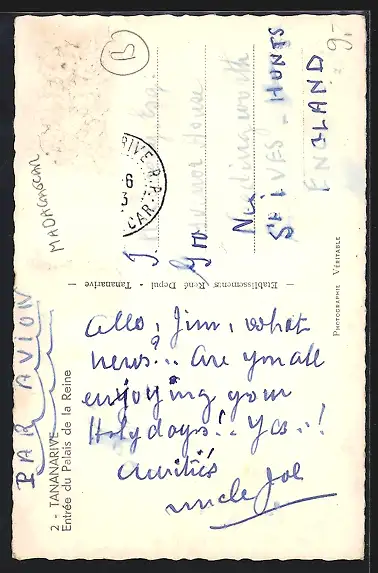 PAR AVION
2 - TANANARIVE
Entrée du Palais de la Reine
Allo, Jim, what
news?.. Are you all
enjoying your
Holydays!.. Yes..!
Amitiés
uncle Joe
MADAGASCAR
B
RIVE R.P.
6
3
CAR
— Etablissements René Depui - Tananarive —
PHOTOGRAPHIE VÉRITABLE
J. Esq.
House
ST IVES - HUNTS
ENGLAND
9.-